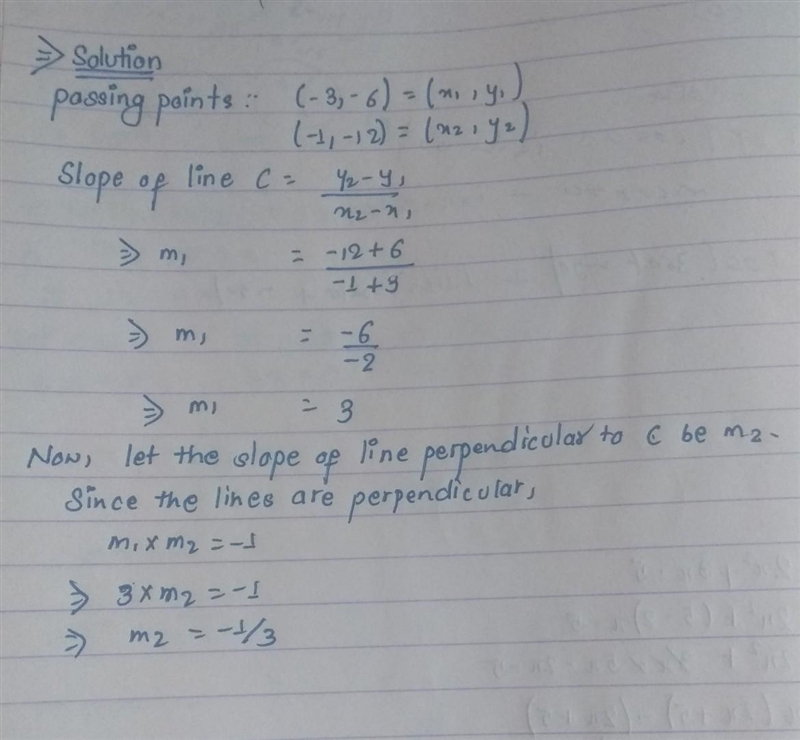 ⇒ Solution
Passing points :- (-3, -6) = (x₁, y₁)
(-1, -12) = (x₂, y₂)
Slope of line C = y₂-y₁ / x₂-x₁
⇒ m₁ = -12+6 / -1+3
⇒ m₁ = -6 / -2
⇒ m₁ = 3
Now, let the slope of line perpendicular to C be m₂.
Since the lines are perpendicular,
m₁ × m₂ = -1
⇒ 3 × m₂ = -1
⇒ m₂ = -1/3